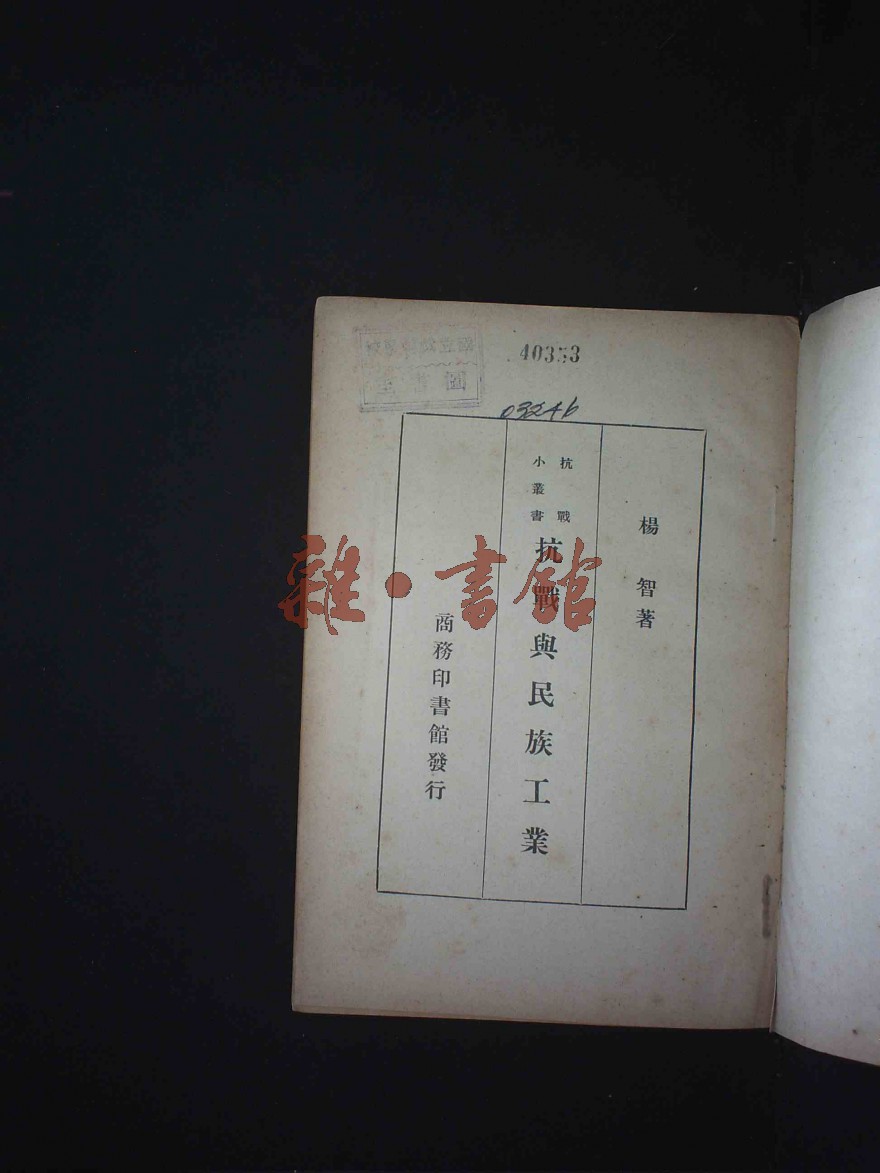 40353
03246
楊智著
抗戰
小叢書
抗戰與民族工業
商務印書館發行
雜·書館